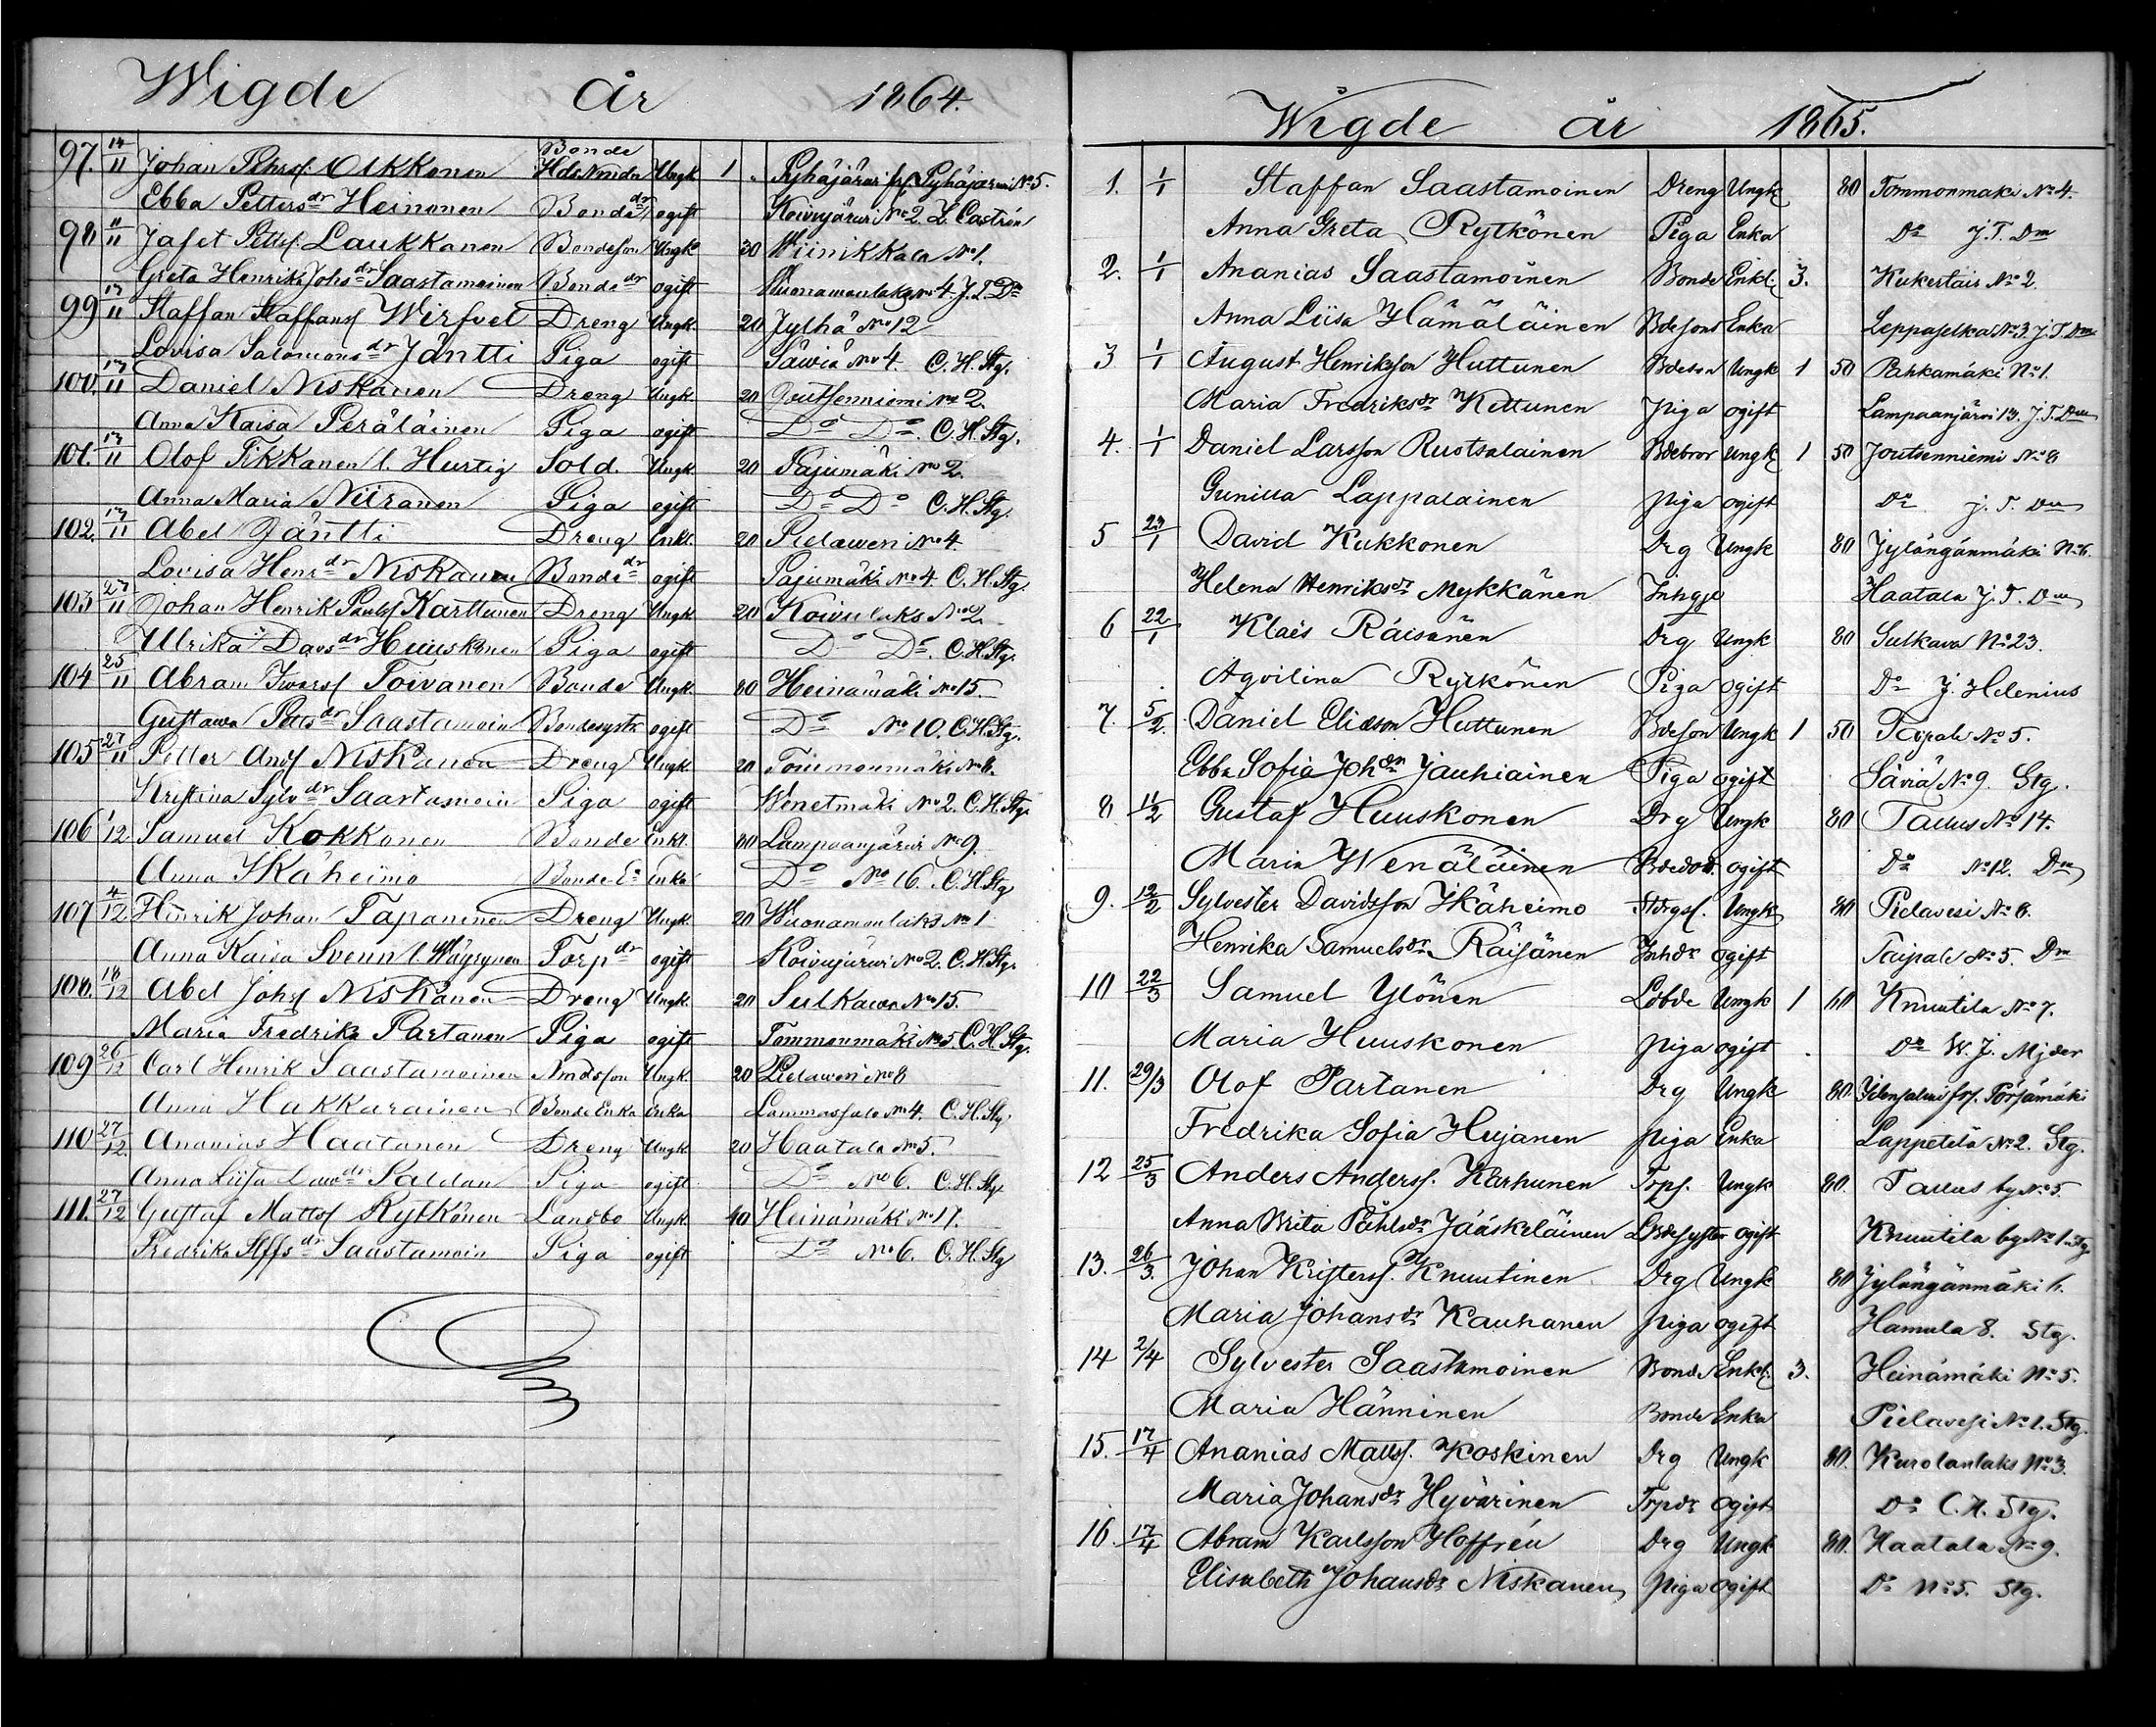 Wigde år 1864.
97. 14/11 Johan Pehrs. Olkkonen Bonde Ungk 1 „ Pyhäjärvi frs. Pyhäjärvi No 5.
Ebba Petters dr Heinonen Bonde dr ogift Koivujärvi No 2. L. Castrén
98 11/11 Jafet Petts. Laukkanen Bondeson Ungk 30 Wiinikkala No 1.
Greta Henrika Johs dr Saastamoinen Bonde dr ogift Wuonamanlaks No 4. J. T. Dm
99 13/11 Staffan Staffans Wirfvel Dreng Ungk. 20 Jylhä No 12
Lovisa Salomons dr Jäntti Piga ogift Säwiä No 4. C. H. Stg.
100. 13/11 Daniel Niskanen Dreng Ungk. 20 Joutsenniemi No 2.
Anna Kaisa Peräläinen Piga ogift Do Do. C. H. Stg.
101. 13/11 Olof Tikkanen l. Hurtig Sold. Ungk 20 Pajumäki No 2.
Anna Maria Niiranen Piga ogift Do Do C. H. Stg.
102. 13/11 Abel Jäntti Dreng Enkl. 20 Pielawesi No 4.
Lovisa Henr dr Niskanen Bonde dr ogift Pajumäki No 4. C. H. Stg.
103 27/11 Johan Henrik Pauls Karttunen Dreng Ungk. 20 Koivulaks No 2.
Ulrika Davs dr Huuskonen Piga ogift Do Do. C. H. Stg.
104 25/11 Abram Iwars Toivanen Bonde Ungk. 80 Heinämäki No 15.
Gustawa Petts dr Saastamoin Bondesystr ogift Do No 10. C. H. Stg.
105 27/11 Petter Ands Niskanen Dreng Ungk. 20 Tommonmäki No 8.
Kristina Sylv dr Saastamoin Piga ogift Wenetmäki No 2. C. H. Stg.
106 1/12 Samuel Kokkonen Bonde Enkl. 80 Lampaanjärvi No 9.
Anna Ikäheimo Bonde E. Enka Do No 16. C. H. Stg
107 4/12 Hinrik Johan Tapaninen Dreng Ungk. 20 Wuonamanlaks No 1
Anna Kaisa Svenn l. Wäyrynen Torp dr ogift Koivujärvi No 2. C. H. Stg.
108. 18/12 Abel Johs Niskanen Dreng Ungk. 20 Sulkawa No 15.
Maria Fredrika Partanen Piga ogift Tommonmäki No 5. C. H. Stg.
109 26/12 Carl Henrik Saastamoinen Nmdsson Ungk. 20 Pielawesi No 8
Anna Hakkarainen Bonde Enka Enka Lammassalo No 4. C. H. Stg.
110 27/12 Ananias Haatanen Dreng Ungk 20 Haatala No 5.
Anna Liisa Law dr Saldan Piga ogift Do No 6. C. H. Stg
111. 27/12 Gustaf Matts Rytkönen Landbo Ungk. 40 Heinämäki No 17.
Fredrika Stffs dr Saastamoin Piga ogift Do No 6. C. H. Stg
Wigde år 1865.
1. 1/1 Staffan Saastamoinen Dreng Ungk 80 Tommonmäki No 4.
Anna Greta Rytkönen Piga Enka Do J. T. Dm
2. 1/1 Ananias Saastamoinen Bonde Enkl. 3. Kukertais No 2.
Anna Liisa Hämäläinen Bdesons Enka Leppäselkä No 3. J. T. Dm
3 1/1 August Henriksson Huttunen Bdeson Ungk 1 50 Pahkamäki No 1.
Maria Fredriks dr Kettunen Piga ogift Lampaanjärvi 13. J. T. Dm
4. 1/1 Daniel Larsson Ruotsalainen Bdebror Ungk 1 50 Joutsenniemi No 8
Gunilla Lappalainen piga ogift Do J. T. Dm
5 23/1 David Kukkonen Drg Ungk 80 Jylängänmäki No 6.
Helena Henriks dr Mykkänen Inhyse Haatala J. T. Dm
6 22/1 Klaës Räisänen Drg Ungk 80 Sulkava No 23.
Aqvilina Rytkönen Piga ogift Do J. Helenius
7. 5/2. Daniel Eliasson Huttunen Bdeson Ungk 1 50 Taipale No 5.
Ebba Sofia Joh dr Jauhiainen Piga ogift Säviä No 9. Stg.
8 11/2 Gustaf Huuskonen Drg Ungk 80 Tallus No 14.
Maria Wenäläinen Bdedotr. ogift Do No 12. Dm
9. 12/2 Sylvester Davidsson Ikäheimo Stdrgs. Ungk 80 Pielavesi No 8.
Henrika Samuels dr Räisänen Inhdr ogift Taipale No 5. Dm
10 22/3 Samuel Ylönen Ldbde Ungk 1 60 Knuutila No 7.
Maria Huuskonen piga ogift Do W. J. Mjder
11. 29/3 Olof Partanen Drg Ungk 80 Idensalmi frs. Pörsämäki
Fredrika Sofia Hujanen piga Enka Lappetelä No 2. Stg.
12 25/3 Anders Anderss. Karhunen Trps. Ungk 80. Tallus by No 5.
Anna Brita Påhls dr Jääskeläinen Ldbdesyster ogift Knuutila by No 1. Stg.
13. 26/3. Johan Kristerss. Knuutinen Drg Ungk 80 Jylängänmäki 6.
Maria Johans dr Kauhanen piga ogift Hamula 8. Stg.
14 2/4 Sylvester Saastamoinen Bonde Enkl. 3. Heinämäki No 5.
Maria Hänninen Bonde Enka Pielavesi No 1. Stg.
15. 17/4 Ananias Matts. Koskinen Drg Ungk 80. Kurolanlaks No 3.
Maria Johans dr Hyvärinen Trpdr ogift Do C. H. Stg.
16. 17/4 Abram Karlsson Hoffrén Drg Ungk 80. Haatala No 9.
Elisabeth Johans dr Niskanen piga ogift Do No 5. Stg.